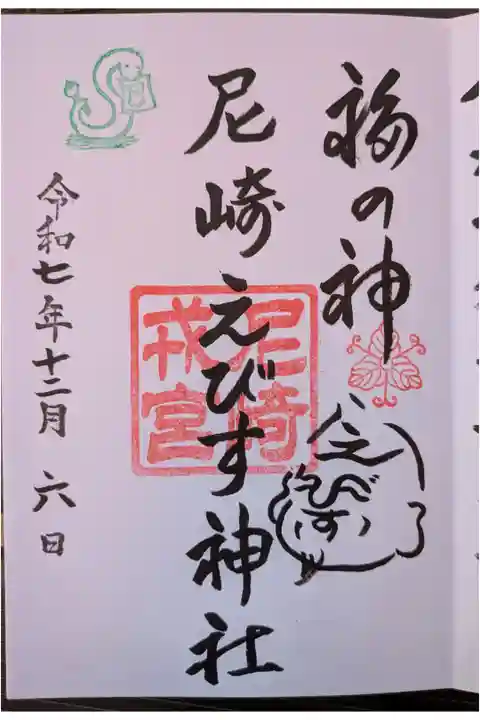 福の神
尼崎えびす神社
尼崎
戎宮
令和七年十二月六日